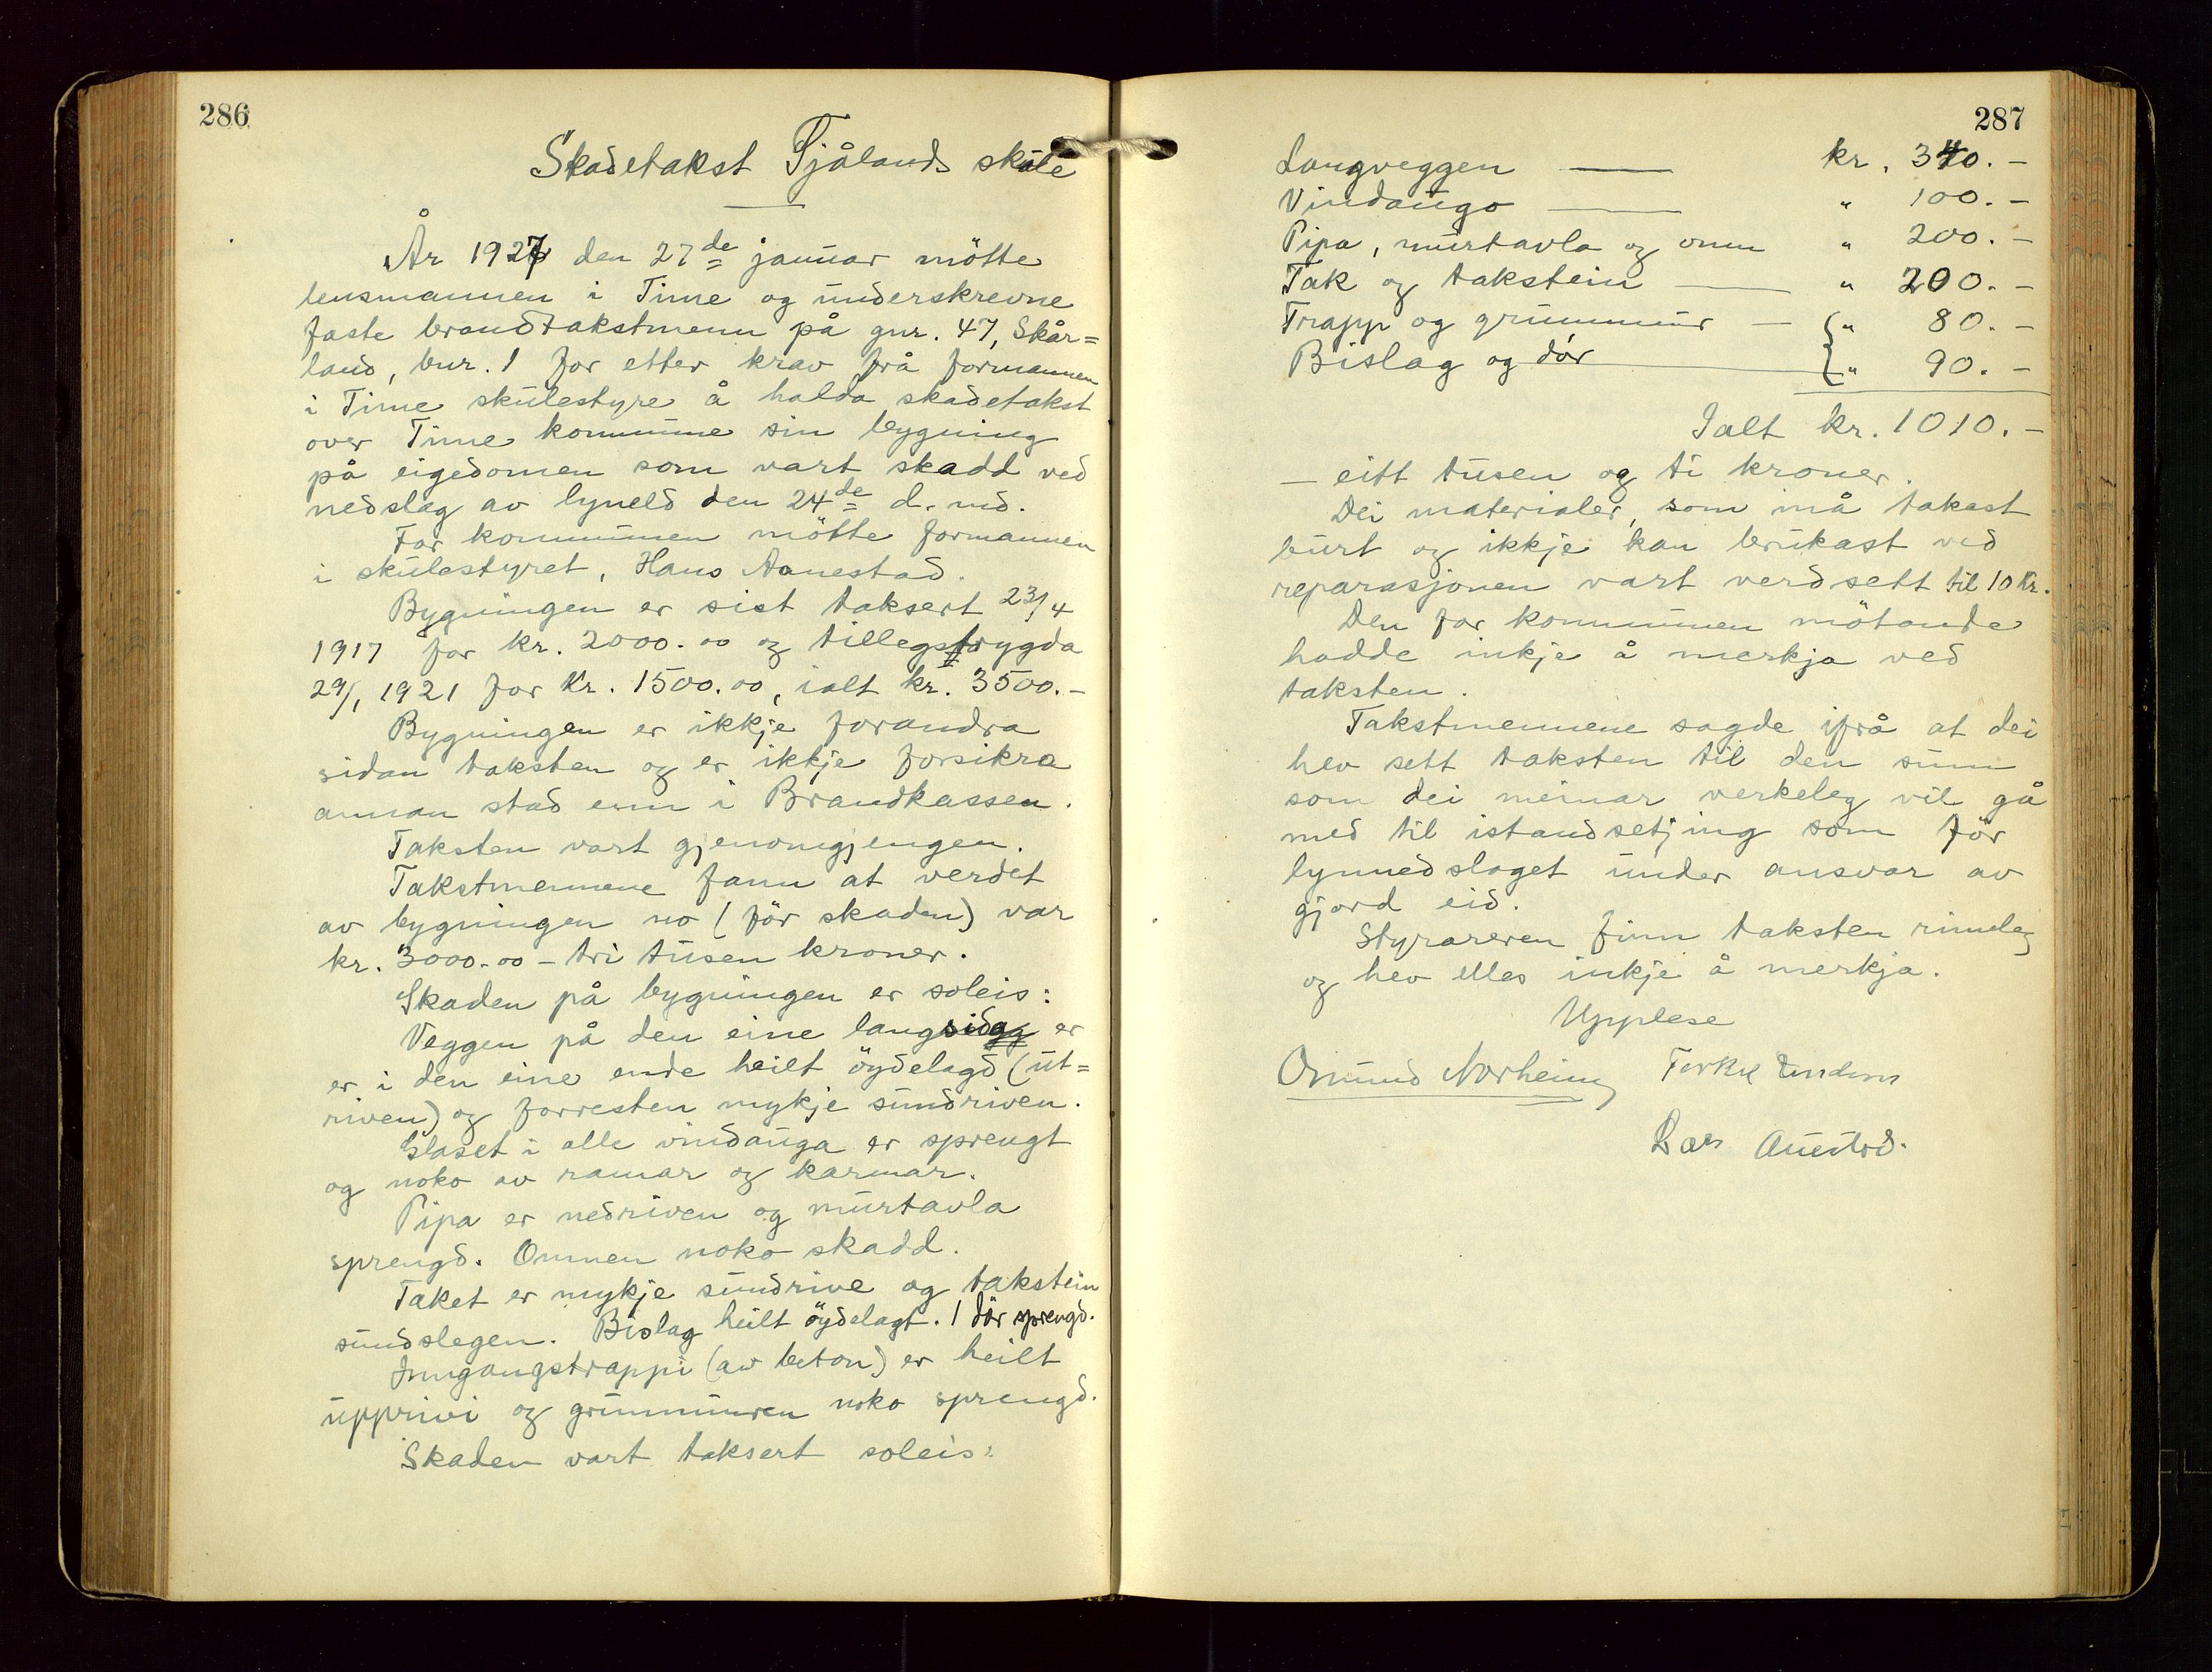 286
Skadetakst Tjålands skule
År 1927 den 27de januar mötte
lensmannen i Time og underskrevne
faste brandtakstmenn på gnr. 47, Skår=
land, bnr. 1 for etter krav frå formannen
i Time skulestyre å halda skadetakst
over Time kommune sin bygning
på eigedomen som vart skadd ved
nedslag av lyneld den 24de d. md.
For kommunen mötte formannen
i skulestyret, Hans Aanestad.
Bygningen er sist taksert 23/4
1917 for kr. 2000.00 og tillegstrygda
29/1 1921 for kr. 1500.00, ialt kr. 3500.-
Bygningen er ikkje forandra
sidan taksten og er ikkje forsikra
annan stad enn i Brandkassen.
Taksten vart gjenomgjengen.
Takstmennene fann at verdet
av bygningen no (för skaden) var
kr. 3000.00 - tri tusen kroner.
Skaden på bygningen er soleis:
Veggen på den eine langsida er
er i den eine ende heilt öydelagd (ut=
riven) og forresten mykje sundriven.
Glaset i alle vindauga er sprengt
og noko av ramar og karmar.
Pipa er nedriven og murtavla
sprengd. Omnen noko skadd.
Taket er mykje sundrive og takstein
sundslegen. Bislag heilt öydelagt. 1 dör sprengd.
Inngangstrappi (av beton) er heilt
upprivi og grunnmuren noko sprengd.
Skaden vart taksert soleis:
287
Langveggen — kr. 340.-
Vindaugo — " 100.-
Pipa, murtavla og omn " 200.-
Tak og takstein — " 200.-
Trapp og grunnmur — " 80.-
Bislag og dör — " 90.-
Ialt kr. 1010.-
- eitt tusen og ti kroner.
Dei materialer, som må takast
burt og ikkje kan brukast ved
reparasjonen vart verdsett til 10 kr.
Den for kommunen mötande
hadde inkje å merkja ved
taksten.
Takstmennene sagde ifrå at dei
hev sett taksten til den sum
som dei meinar verkeleg vil gå
med til istandsetjing som för
lynnedslaget under ansvar av
gjord eid.
Styraren finn taksten rimeleg
og hev elles inkje å merkja.
Upplese
Osmund Norheim Torkel
Lars Auestad.